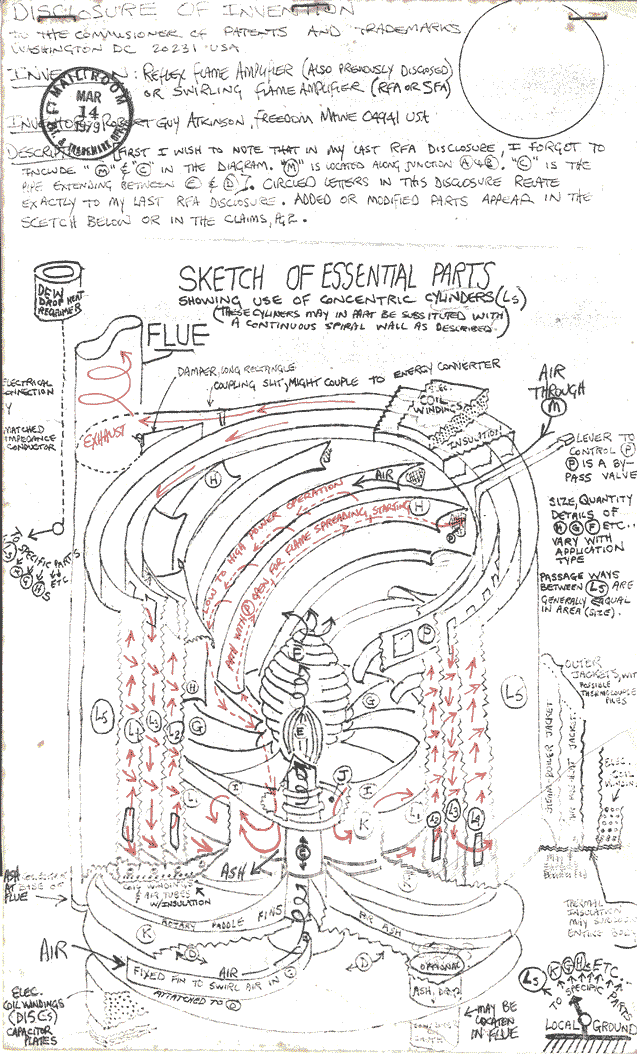 DISCLOSURE OF INVENTION
TO THE COMMISSIONER OF PATENTS AND TRADEMARKS
WASHINGTON DC 20231 USA
INVENTION: REFLEX FLAME AMPLIFIER (ALSO PREVIOUSLY DISCLOSED)
OR SWIRLING FLAME AMPLIFIER (RFA OR SFA)
MAILROOM
MAR
14
1979
INVENTOR: ROBERT GUY ATKINSON, FREEDOM MAINE 04941 USA
FIRST I WISH TO NOTE THAT IN MY LAST RFA DISCLOSURE, I FORGOT TO
INCLUDE "M" & "C" IN THE DIAGRAM. "M" IS LOCATED ALONG JUNCTION A & B. "C" IS THE
PIPE EXTENDING BETWEEN E & D. CIRCLED LETTERS IN THIS DISCLOSURE RELATE
EXACTLY TO MY LAST RFA DISCLOSURE. ADDED OR MODIFIED PARTS APPEAR IN THE
SCETCH BELOW OR IN THE CLAIMS, PG. 2.
DEW
DROP HEAT
SKETCH OF ESSENTIAL PARTS
SHOWING USE OF CONCENTRIC CYLINDERS (LS)
(THESE CYLINERS MAY IN PART BE SUBSITUTED WITH
A CONTINUOUS SPIRAL WALL AS DESCRIBED)
FLUE
DAMPER, LONG RECTANGLE
COUPLING SLIT, MIGHT COUPLE TO ENERGY CONVERTER
ELEC.
COIL
WINDINGS
INSULATION
AIR
THROUGH
M
ELECTRICAL
CONNECTION
Y
MATCHED
IMPEDANCE
CONDUCTOR
EXHAUST
LEVER TO
CONTROL P
P IS A BY-
PASS VALVE
AIR
H
H
SIZE, QUANTITY
DETAILS OF
H G F ETC..
VARY WITH
APPLICATION
TYPE
PASSAGE WAYS
BETWEEN LS ARE
GENERALLY EQUAL
IN AREA (SIZE).
LOW TO HIGH POWER OPERATION
PATH WITH P OPEN, FOR FLAME SPREADING, STARTING
TO SPECIFIC PARTS
ETC.
P
F
H
G
G
E
L5
L4
L3
L2
L5
OUTER
JACKETS, WITH
POSSIBLE
THERMOCOUPLE
PILES
STEAM-BOILER JACKET
HOT AIR HEAT JACKET
ELEC.
COIL
WINDIN.
L1
I
J
I
K
L1
L2
L3
L4
C
ASH
ASH
AT BASE OF
FLUE
COIL WINDINGS
& AIR TUBES
W/INSULATION
THERMAL
INSULATION
MAY SURROUND
ENTIRE BODY
K
ROTARY PADDLE FINS
FOR ASH
AIR
D
D
AIR
FIXED FIN TO SWIRL AIR IN C
ATTATCHED TO D
OPTIONAL
ASH DR?
ELEC.
COIL WINDINGS
(DISCS)
CAPACITOR
PLATES
MAY BE
LOCATEN
IN FLUE
LS K G H ETC..
TO SPECIFIC PARTS
LOCAL GROUND